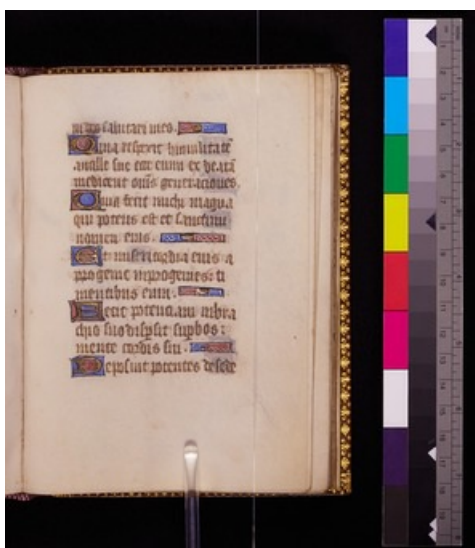 in deo salutari meo.
Quia respexit humilitatē
ancille sue ecce enim ex hoc beatā
me dicent om̄s generaciones
Quia fecit michi magna
qui potens est et sanctum
nomen eius.
Et misericordia eius a
progenie in progenies: ti
mentibus eum.
Fecit potenciam in bra
chio suo dispsit supbos:
mente cordis sui.
Deposuit potentes de sede